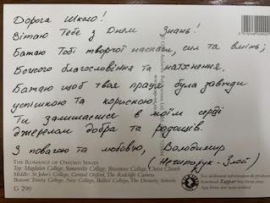 Дорога Школо!
Вітаю Тебе з Днем Знань!
Бажаю Тобі творчої наснаги, сил та вмінь,
Божого благословіння та натхнення.
Бажаю щоб твоя праця була завжди
успішною та корисною.
Ти залишаєшся в моїм серці
джерелом добра та радощів.
З повагою та любов'ю, Володимир
THE ROMANCE OF OXFORD SERIES
Top: Magdalen College, Somerville College, Christ Church
Middle: St John's College, The Radcliffe Camera
Trinity College, New College, Balliol College
G 290